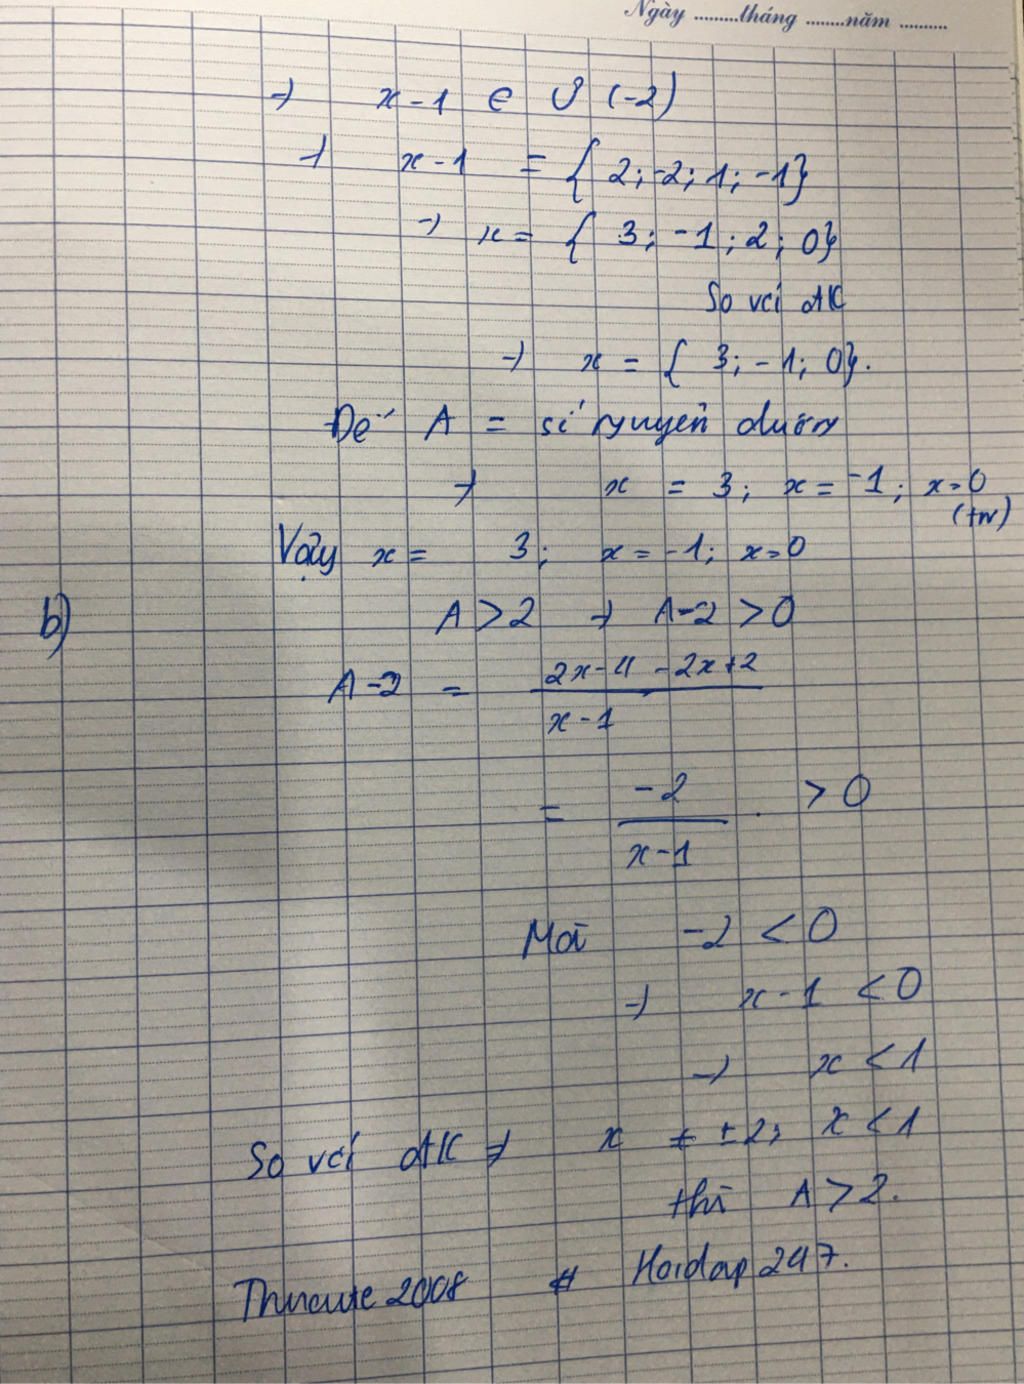 Ngày .........tháng ........năm ..........
→ x-1 ∈ Ư (-2)
→ x-1 = { 2; -2; 1; -1}
→ x = { 3; -1; 2; 0}
So với đk
→ x = { 3; -1; 0}.
Để A = số nguyên dương
→ x = 3; x = -1; x = 0
(tm)
Vậy x = 3; x = -1; x = 0
b) A > 2 → A-2 > 0
A-2 = \frac{2x-4-2x+2}{x-1}
= \frac{-2}{x-1} > 0
Mà -2 < 0
→ x-1 < 0
→ x < 1
So với đk → x ≠ ±2; x < 1
thì A > 2.
Thucute2008 # Hoidap247.